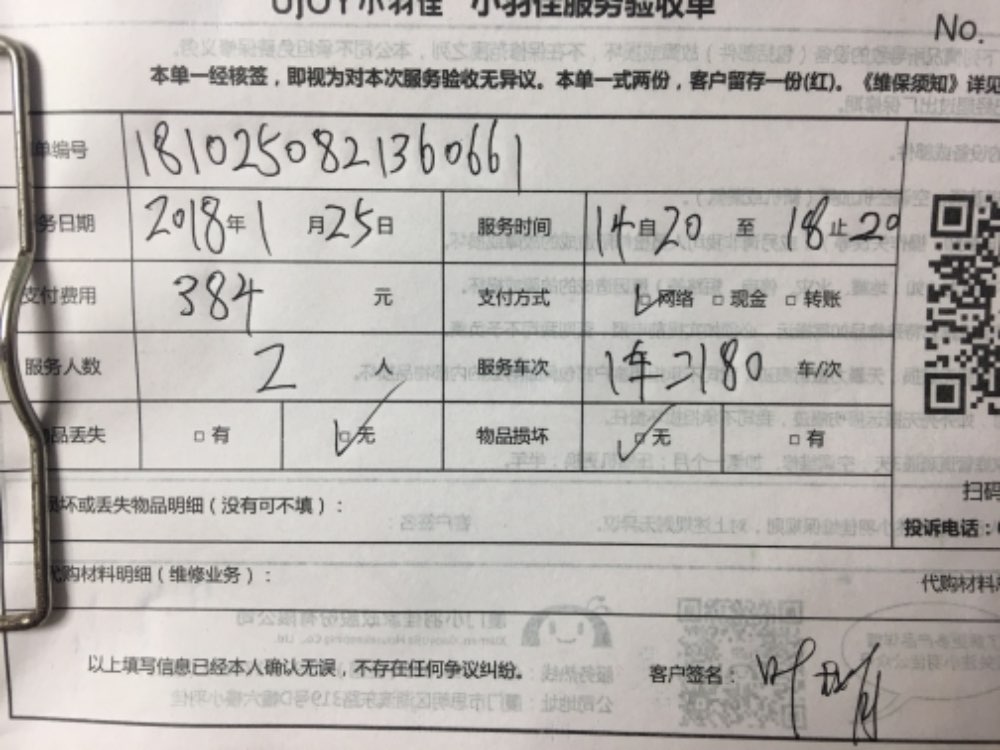 UJOY小羽佳 小羽佳服务验收单
No.
本单一经核签，即视为对本次服务验收无异议。本单一式两份，客户留存一份(红)。《维保须知》详见
单编号 1810250821360661
务日期 2018年1月25日 服务时间 14自20至18止20
支付费用 384 元 支付方式 □网络 □现金 □转账
服务人数 2 人 服务车次 1车 2180 车/次
品丢失 □有 □无 物品损坏 □无 □有
扫码
损坏或丢失物品明细（没有可不填）：
投诉电话：
代购材料明细（维修业务）：
代购材料
以上填写信息已经本人确认无误，不存在任何争议纠纷。 客户签名：